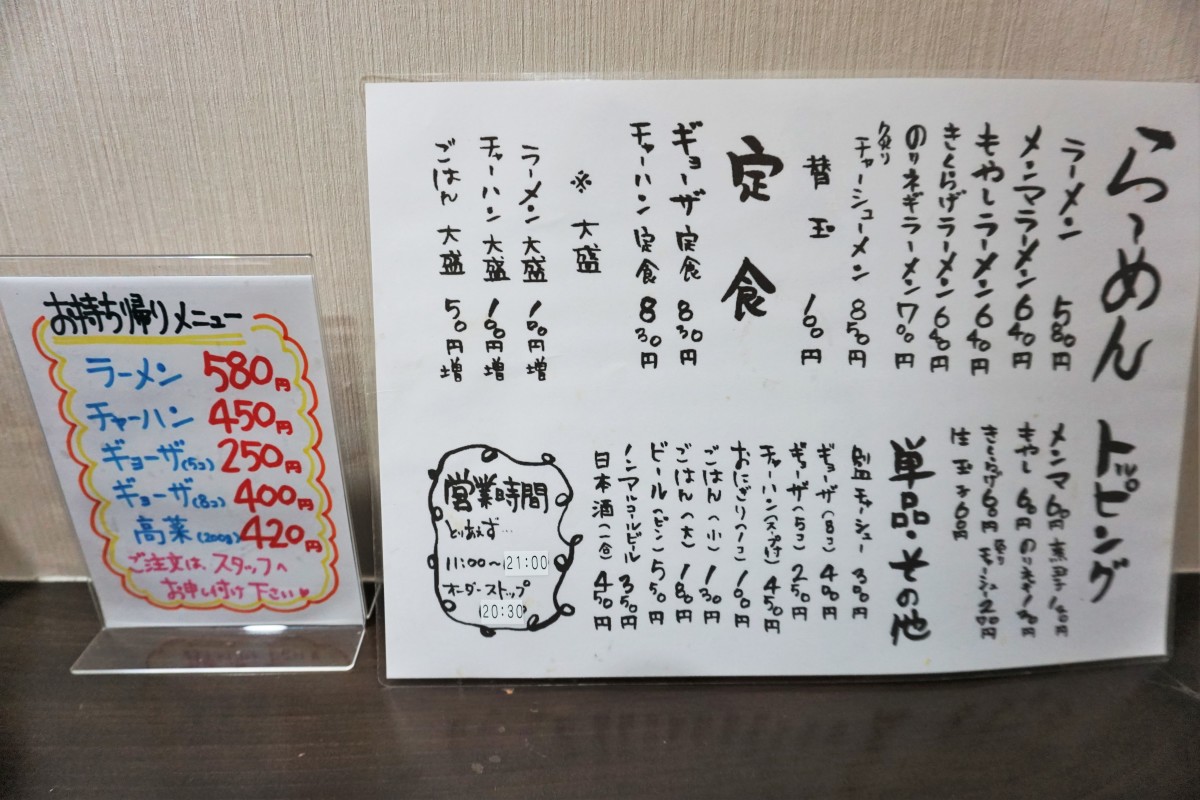 お持ち帰りメニュー
ラーメン 580円
チャーハン 450円
ギョーザ(5コ) 250円
ギョーザ(8コ) 400円
高菜(200g) 420円
ご注文は、スタッフへ
お申し付け下さい♥
らーめん
ラーメン 580円
メンマラーメン 640円
もやしラーメン 640円
きくらげラーメン 640円
のりネギラーメン 700円
炙りチャーシューメン 850円
替玉 100円
定食
ギョーザ定食 830円
チャーハン定食 830円
※大盛
ラーメン大盛 100円増
チャーハン大盛 100円増
ごはん大盛 50円増
トッピング
メンマ 60円
もやし 60円 のりネギ
きくらげ 60円 炙りチャーシュー 200円
生玉子 60円
単品・その他
チャーシュー 300円
ギョーザ(8コ) 400円
ギョーザ(5コ) 250円
チャーハン(スープ付) 450円
おにぎり(1コ) 100円
ごはん(小) 130円
ごはん(大) 180円
ビール(ビン) 550円
ノンアルコールビール 350円
日本酒(一合) 450円
営業時間
とりあえず…
11:00〜21:00
オーダーストップ
20:30